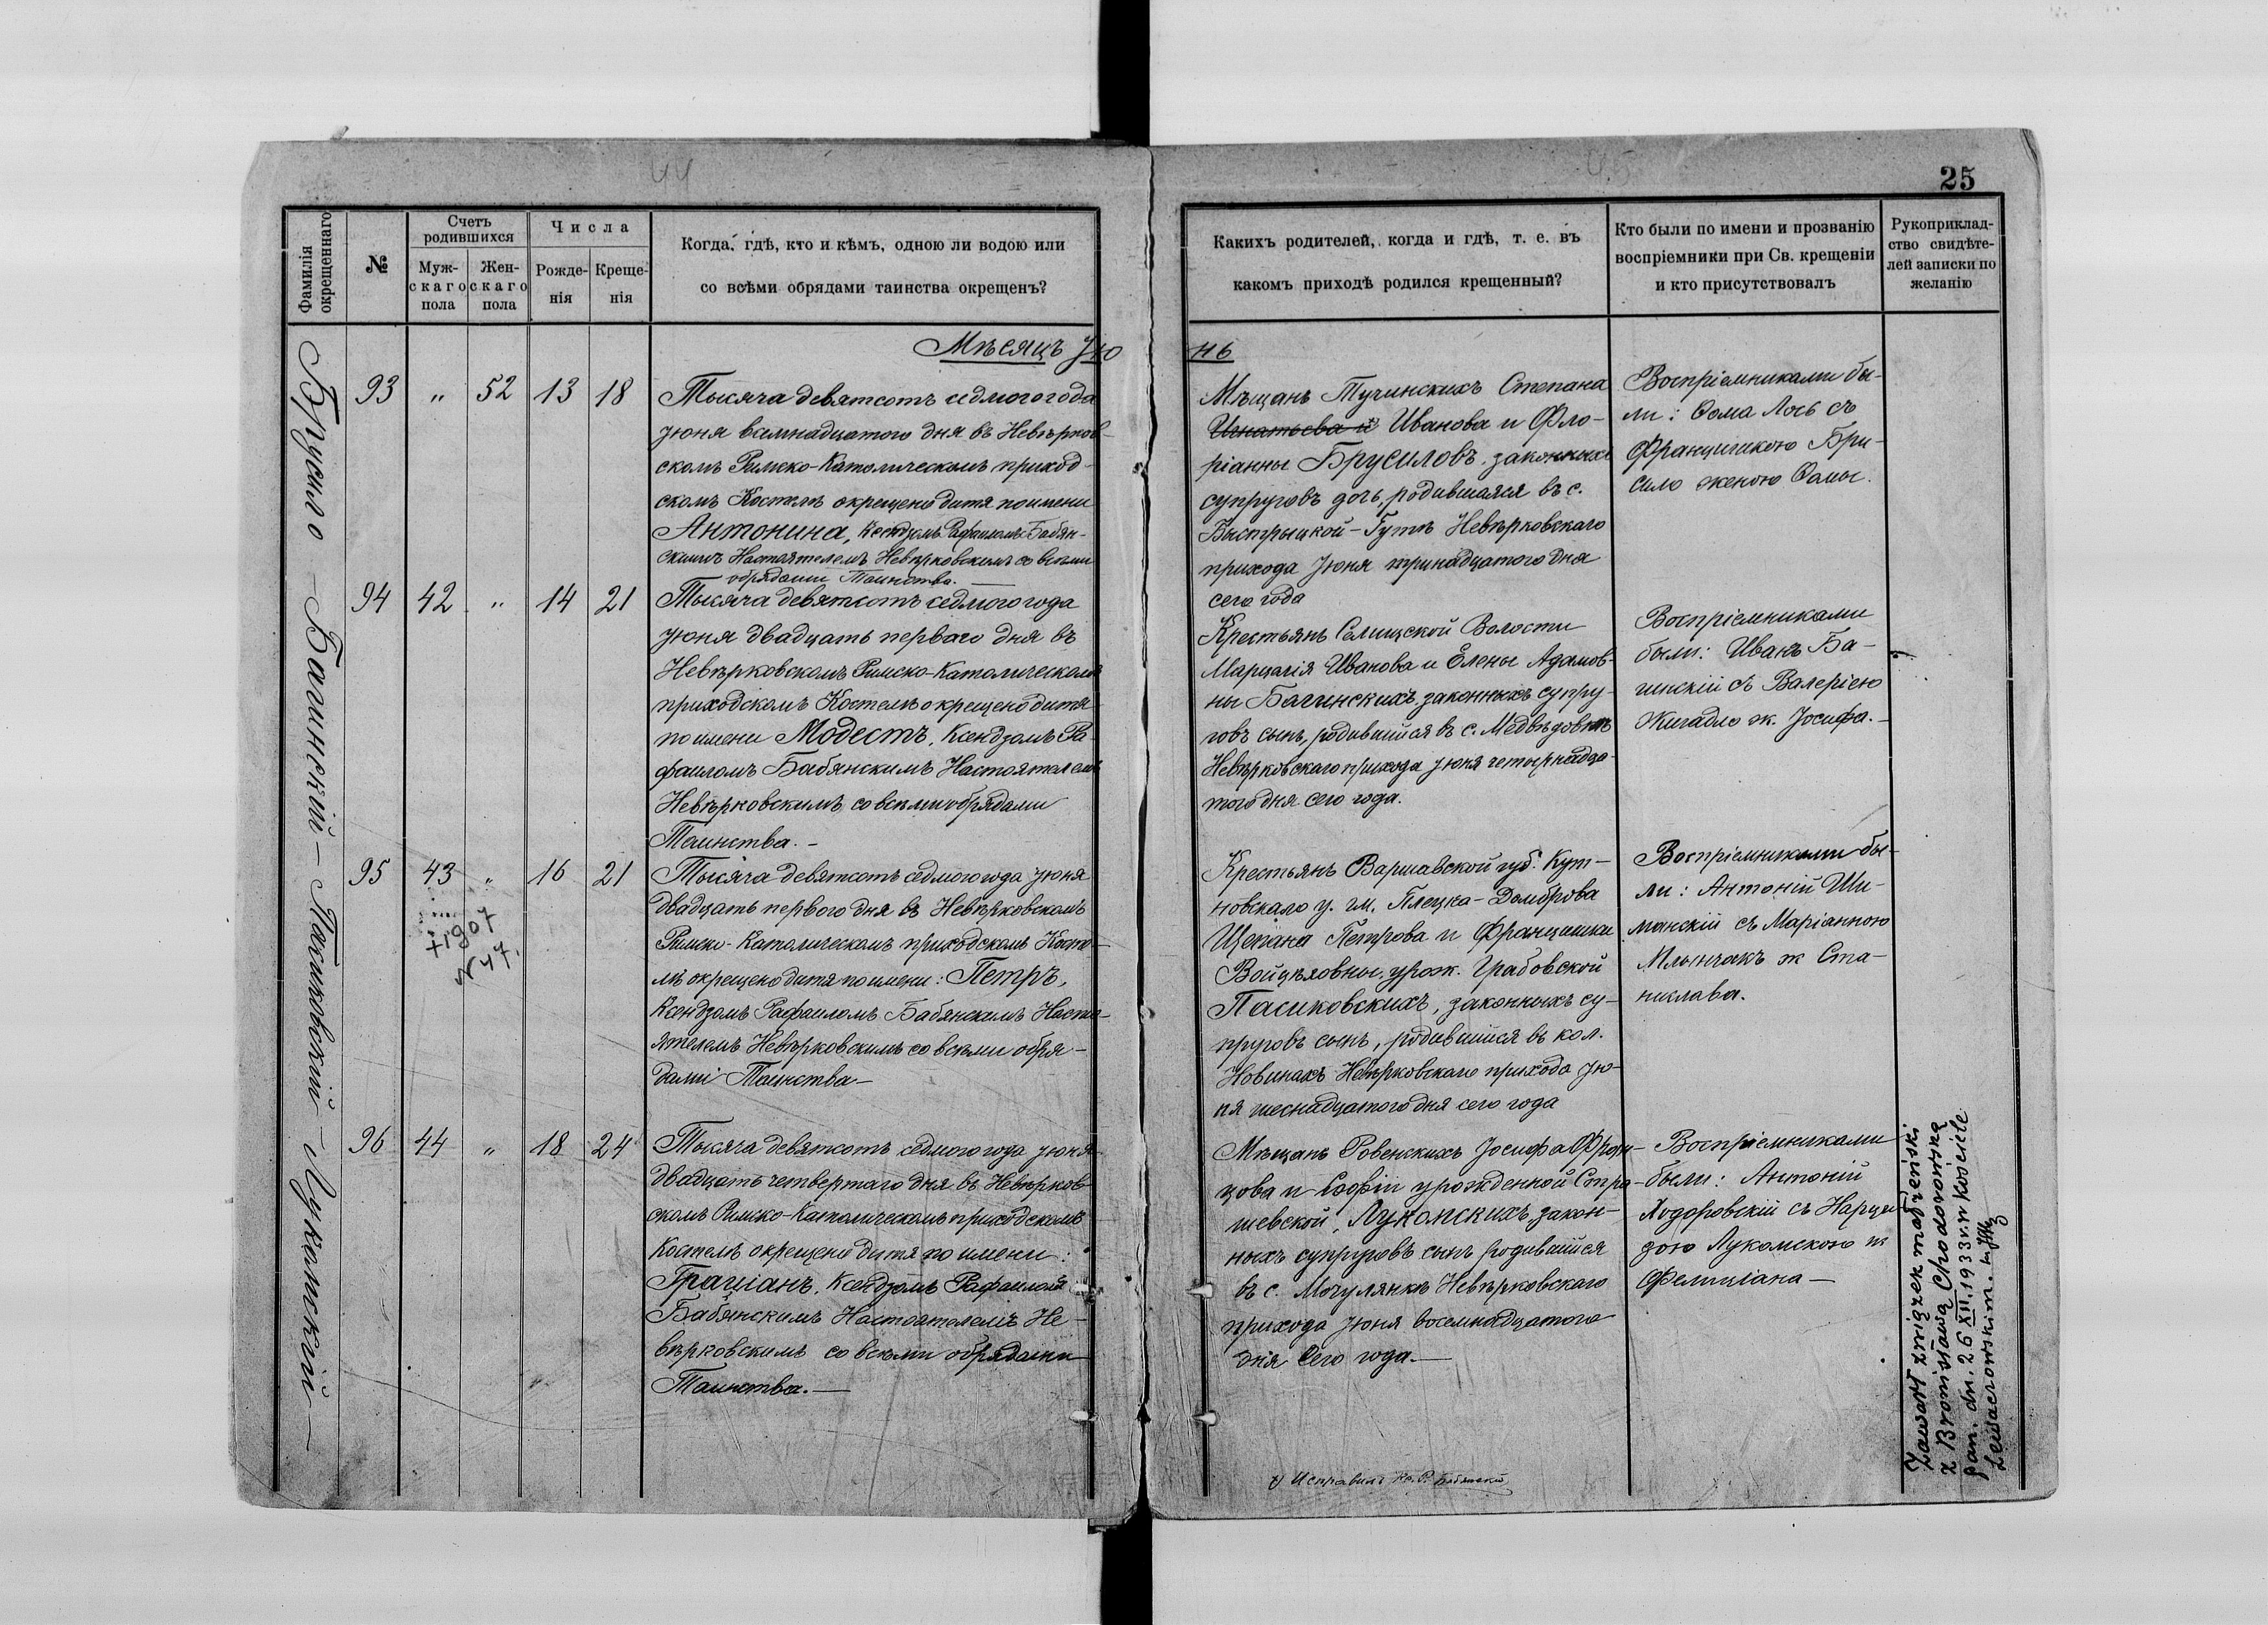 44
45
25
Фамилія
окрещеннаго
№
Счетъ
родившихся
Муж-
скаго
пола
Жен-
скаго
пола
Числа
Рожде-
нія
Креще-
нія
Когда, гдѣ, кто и кѣмъ, одною ли водою или
со всѣми обрядами таинства окрещенъ?
Какихъ родителей, когда и гдѣ, т. е. въ
какомъ приходѣ родился крещенный?
Кто были по имени и прозванію
воспріемники при Св. крещеніи
и кто присутствовалъ
Рукоприклад-
ство свидѣте-
лей записки по
желанію
Мѣсяцъ Іюнь
Брусило
93 " 52 13 18
Тысяча девятсотъ седмого года
Іюня вамнадцатого дня въ Невѣрков-
скомъ Римско-Католическомъ приход-
скомъ Костелѣ окрещено дитя по имени
Антонина, Ксендзомъ Рафаиломъ Бабян-
скимъ Настоятелемъ Невѣрковскимъ со всѣми
обрядами Таинства.
Мѣщанъ Тучинскихъ Степана
Игнатьева и Иванова и Фло-
ріанны Брусиловъ законныхъ
супруговъ дочь, родившаяся въ с.
Быстрыцкой-Гутѣ Невѣрковскаго
прихода Іюня тринадцатого дня
сего года
Воспріемниками бы-
ли: Ѳома Лось съ
Францишкою Бру-
сило женою Ѳомы.
Багинскій
94 42 " 14 21
Тысяча девятсотъ седмого года
Іюня двадцать перваго дня въ
Невѣрковскомъ Римско-Католическомъ
приходскомъ Костелѣ окрещено дитя
по имени Модестъ, Ксендзомъ Ра-
фаиломъ Бабянскимъ Настоятелемъ
Невѣрковскимъ, со всѣми обрядами
Таинства. -
Крестьянъ Селищской Волости
Марцелія Иванова и Елены Адамов-
ны Багинскихъ законныхъ супру-
говъ сынъ, родившійся въ с. Медвѣдовкѣ
Невѣрковскаго прихода Іюня четырнадца-
того дня сего года.
Воспріемниками
были: Иванъ Ба-
гинскій съ Валеріею
Жигадло ж. Іосифа. -
Пасиковскій
95 43 " 16 21
+1907
N 47.
Тысяча девятсотъ седмого года Іюня
двадцать первого дня въ Невѣрковскомъ
Римско-Католическомъ приходскомъ Косте-
лѣ окрещено дитя по имени: Петръ,
Ксендзомъ Рафаиломъ Бабянскимъ Насто-
ятелемъ Невѣрковскимъ со всѣми обря-
дами Таинства -
Крестьянъ Варшавской губ. Кут-
новскаго у. гм. Плецка-Домброва
Щепана Петрова и Францишки
Войцѣховны, урож. Грабовской
Пасиковскихъ, законныхъ су-
пруговъ сынъ, родившійся въ кол.
Новинахъ Невѣрковскаго прихода Ію-
ня шеснадцатого дня сего года
Воспріемниками бы-
ли: Антоній Ши-
манскій съ Маріанною
Млынчакъ ж Ста-
нислава.
Лукомскій
96 44 " 18 24
Тысяча девятсотъ седмого года Іюня
двадцать четвертаго дня въ Невѣрков-
скомъ Римско-Католическомъ приходскомъ
Костелѣ окрещено дитя по имени:
Граціанъ, Ксендзомъ Рафаиломъ
Бабянскимъ Настоятелемъ Не-
вѣрковскимъ со всѣми обрядами
Таинства. -
Мѣщанъ Ровенскихъ Іосифа Фран-
цова и Софіи урожденной Стра-
шевской, Лукомскихъ закон-
ныхъ супруговъ сынъ родившійся
въ с. Могулянкѣ Невѣрковскаго
прихода Іюня восемнадцатого
дня сего года. -
Воспріемниками
были: Антоній
Ходоровскій съ Нарци-
зою Лукомскою ж
Фелиціана -
Zawarł związek małżeński
z Bronisławą Chodorowską
dn. 26 XII. 1933 r. w kościele
Исправилъ Кс. Р. Бабянскій